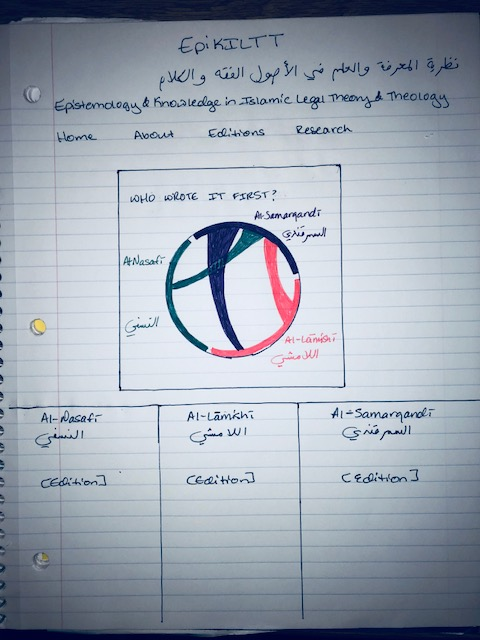 EpiKILTT
نظرية المعرفة والعلم في الأصول الفقه والكلام
Epistemology & Knowledge in Islamic Legal Theory & Theology
Home About Editions Research
WHO WROTE IT FIRST?
Al-Samarqandī
السمرقندي
Al-Nasafī
النسفي
Al-Lāmishī
اللامشي
Al-Nasafī
النسفي
[Edition]
Al-Lāmishī
اللامشي
[Edition]
Al-Samarqandī
السمرقندي
[Edition]